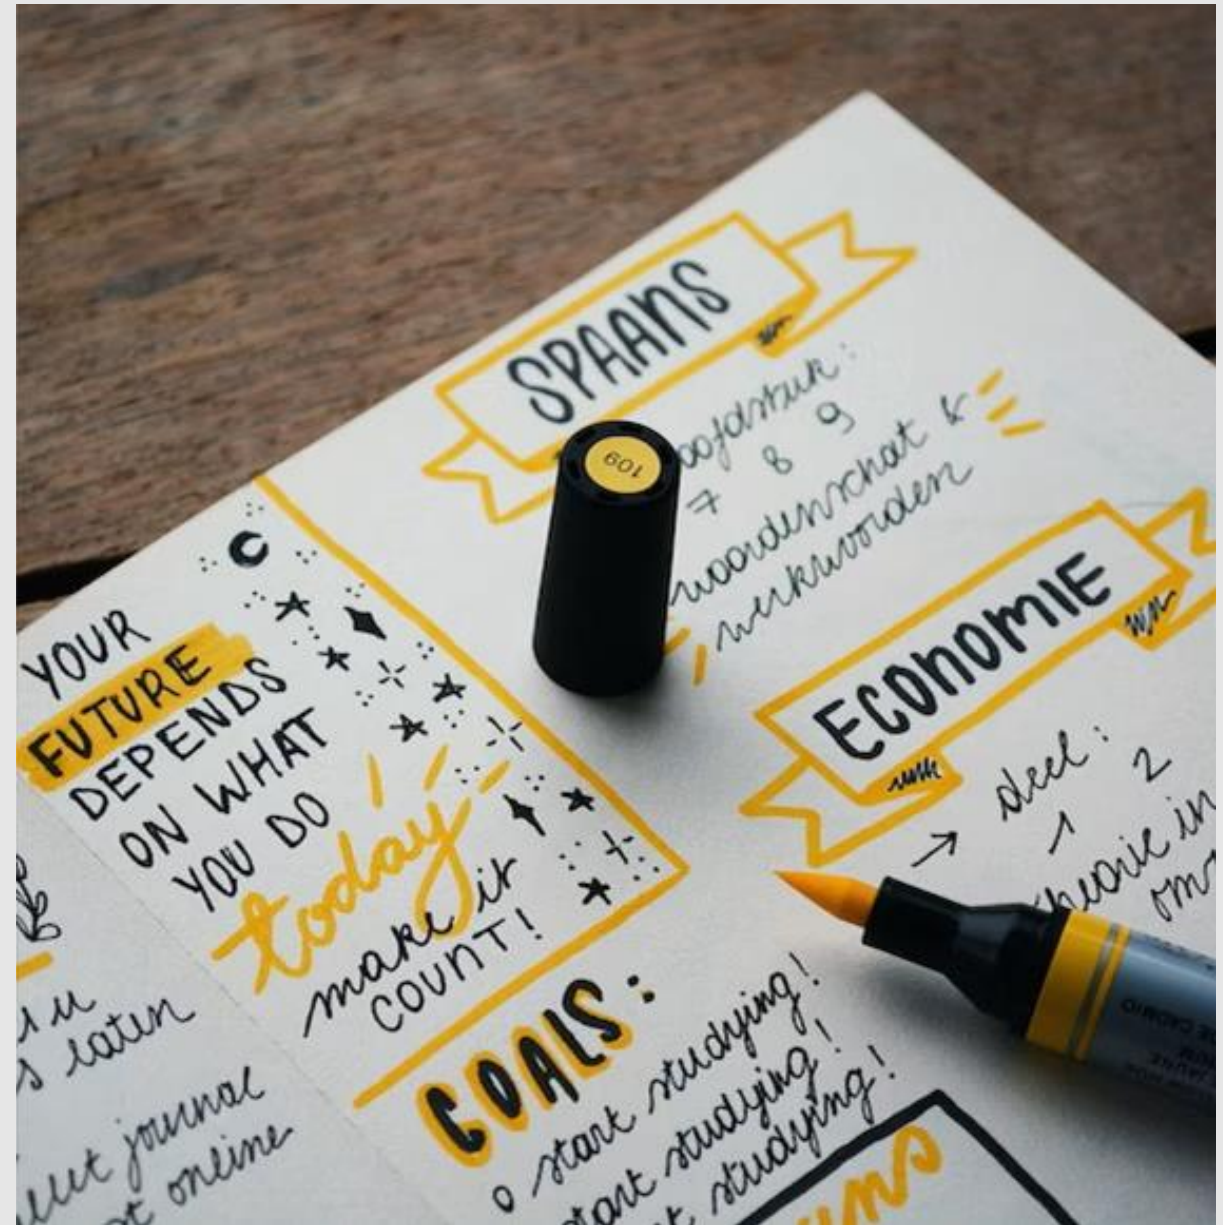 SPAANS
hoofdstuk:
7 8 9
woordenschat &
werkwoorden
109
ECONOMIE
→ deel:
1 2
theorie in
YOUR
FUTURE
DEPENDS
ON WHAT
YOU DO
today
make it
COUNT!
GOALS:
o start studying!
start studying!
studying!
laten
journal
online